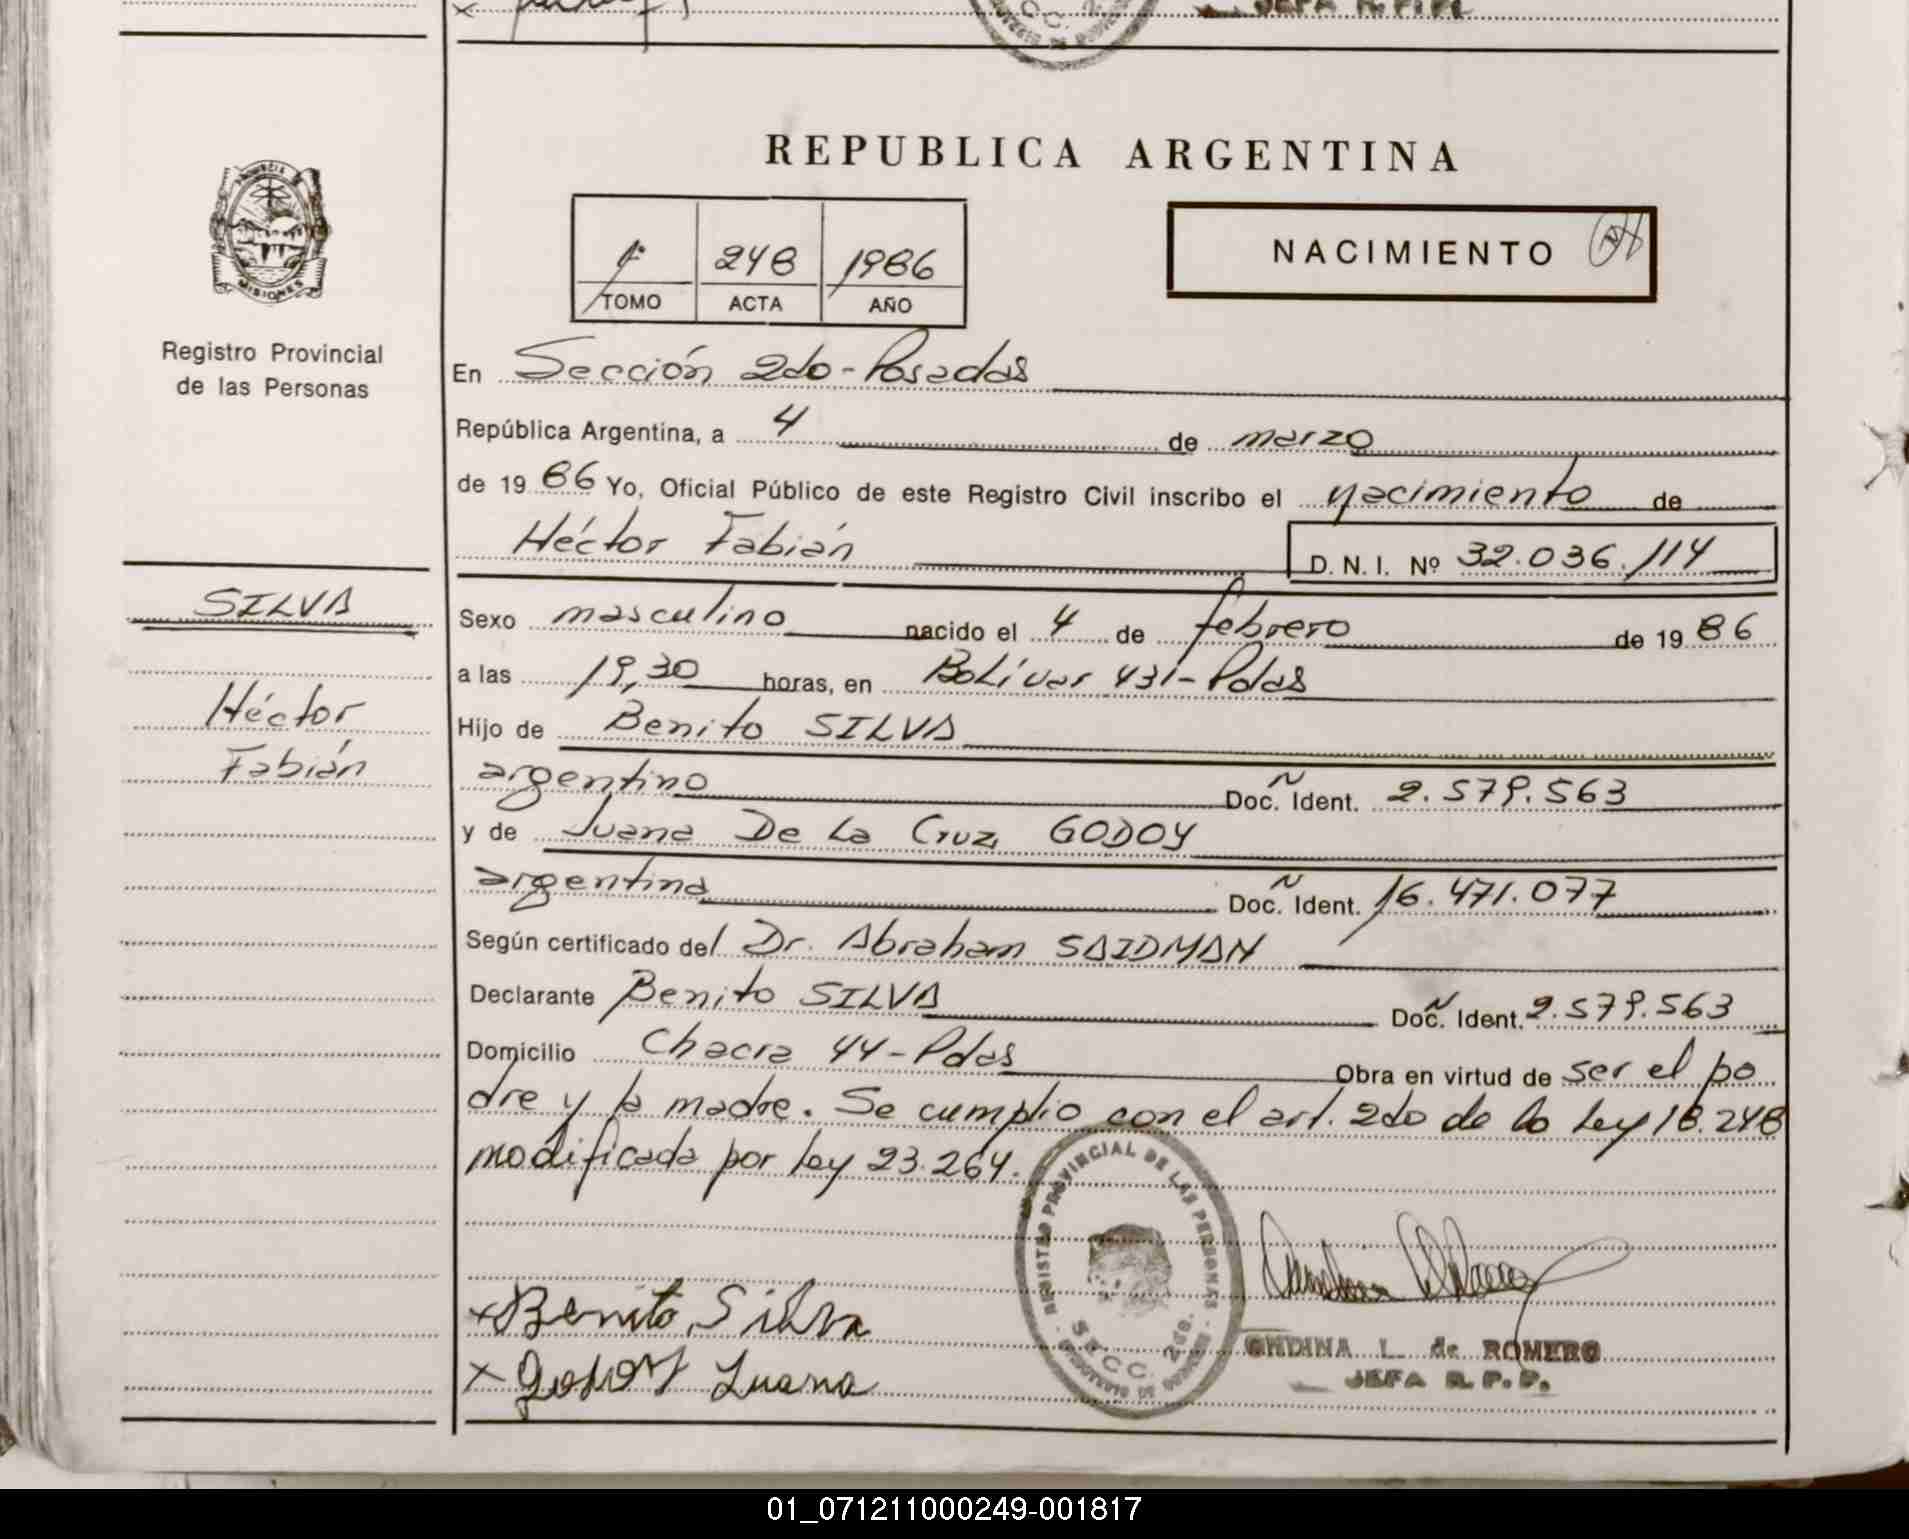 JEFA R.P.P.
REPUBLICA ARGENTINA
PROVINCIA D
MISIONES
1º 248 1986
TOMO ACTA AÑO
NACIMIENTO
Registro Provincial
de las Personas
En Sección 2do-Posadas
República Argentina, a 4 de marzo
de 1986 Yo, Oficial Público de este Registro Civil inscribo el nacimiento de
Héctor Fabián D. N. I. Nº 32.036.114
SILVA
Héctor
Fabián
Sexo masculino nacido el 4 de febrero de 1986
a las 19,30 horas, en Bolívar 431-Pdas
Hijo de Benito SILVA
argentino Doc. Ident. 2.579.563
y de Juana De La Cruz GODOY
argentina Doc. Ident. 16.471.077
Según certificado del Dr. Abraham SAIDMAN
Declarante Benito SILVA Doc. Ident. 2.579.563
Domicilio Chacra 44-Pdas Obra en virtud de ser el pa
dre y la madre. Se cumplio con el art. 2do de la Ley 18.248
modificada por ley 23.264.
REGISTRO PROVINCIAL DE LAS PERSONAS
SECC. 2da.
x Benito Silva
x Godoy Juana
ONDINA L. de ROMERO
JEFA R.P.P.
01_071211000249-001817